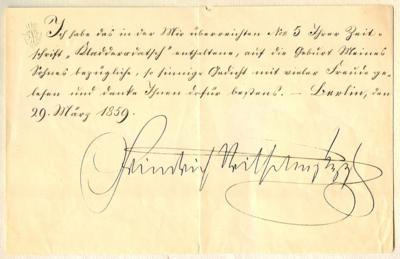 Ich habe das in der Mir überreichten No 5 Ihrer Zeit-
schrift „Kladderadatsch“ enthaltene, auf die Geburt Meines
Sohnes bezügliche, so sinnige Gedicht mit vieler Freude ge-
lesen und danke Ihnen dafür bestens. — Berlin, den
29. März 1859.
Friedrich Wilhelm